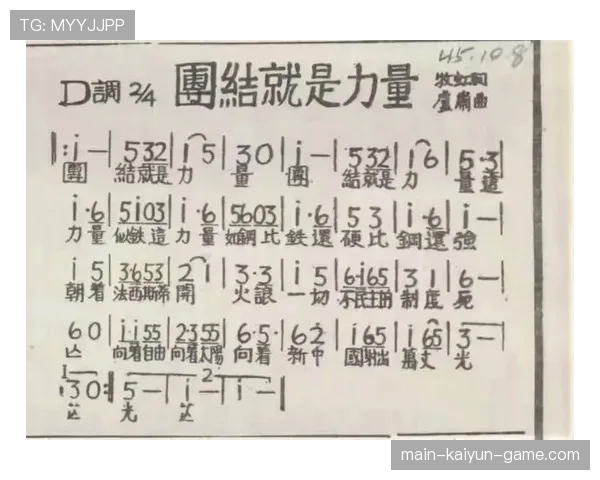 TG: MYYJJPP
45.10.8
D調 2/4 團結就是力量 牧虹詞
盧肅曲
‖: i – | 5 32 | i 5 | 3 0 | i – | 5 32 | i 6 | 5·3 |
團 結就是 力 量 團 結就是 力 量這
i·6 | 5i03 | i·6 | 5603 | i·6 | 5 3 | i·6 | i – |
力量 似鉄這 力量 如鋼比 鉄還 硬比 鋼還 強
i 5 | 3·653 | 2 i | 3·3 | i 5 | 6·i65 | 3 1 | 6 – |
朝着 法西斯帝 開 火讓 一切 不民主的 制度 死
6 0 | i·i55 | 2·355 | 6·5· | 6 2 | i 65 | i 65 | 3 – |
亡 向着自由 向着太陽 向着 新中 國射出 萬丈 光
1 2
3 0 :‖ 5 – | i – | i – ‖
芒 光 芒
main-kaiyun-game.com